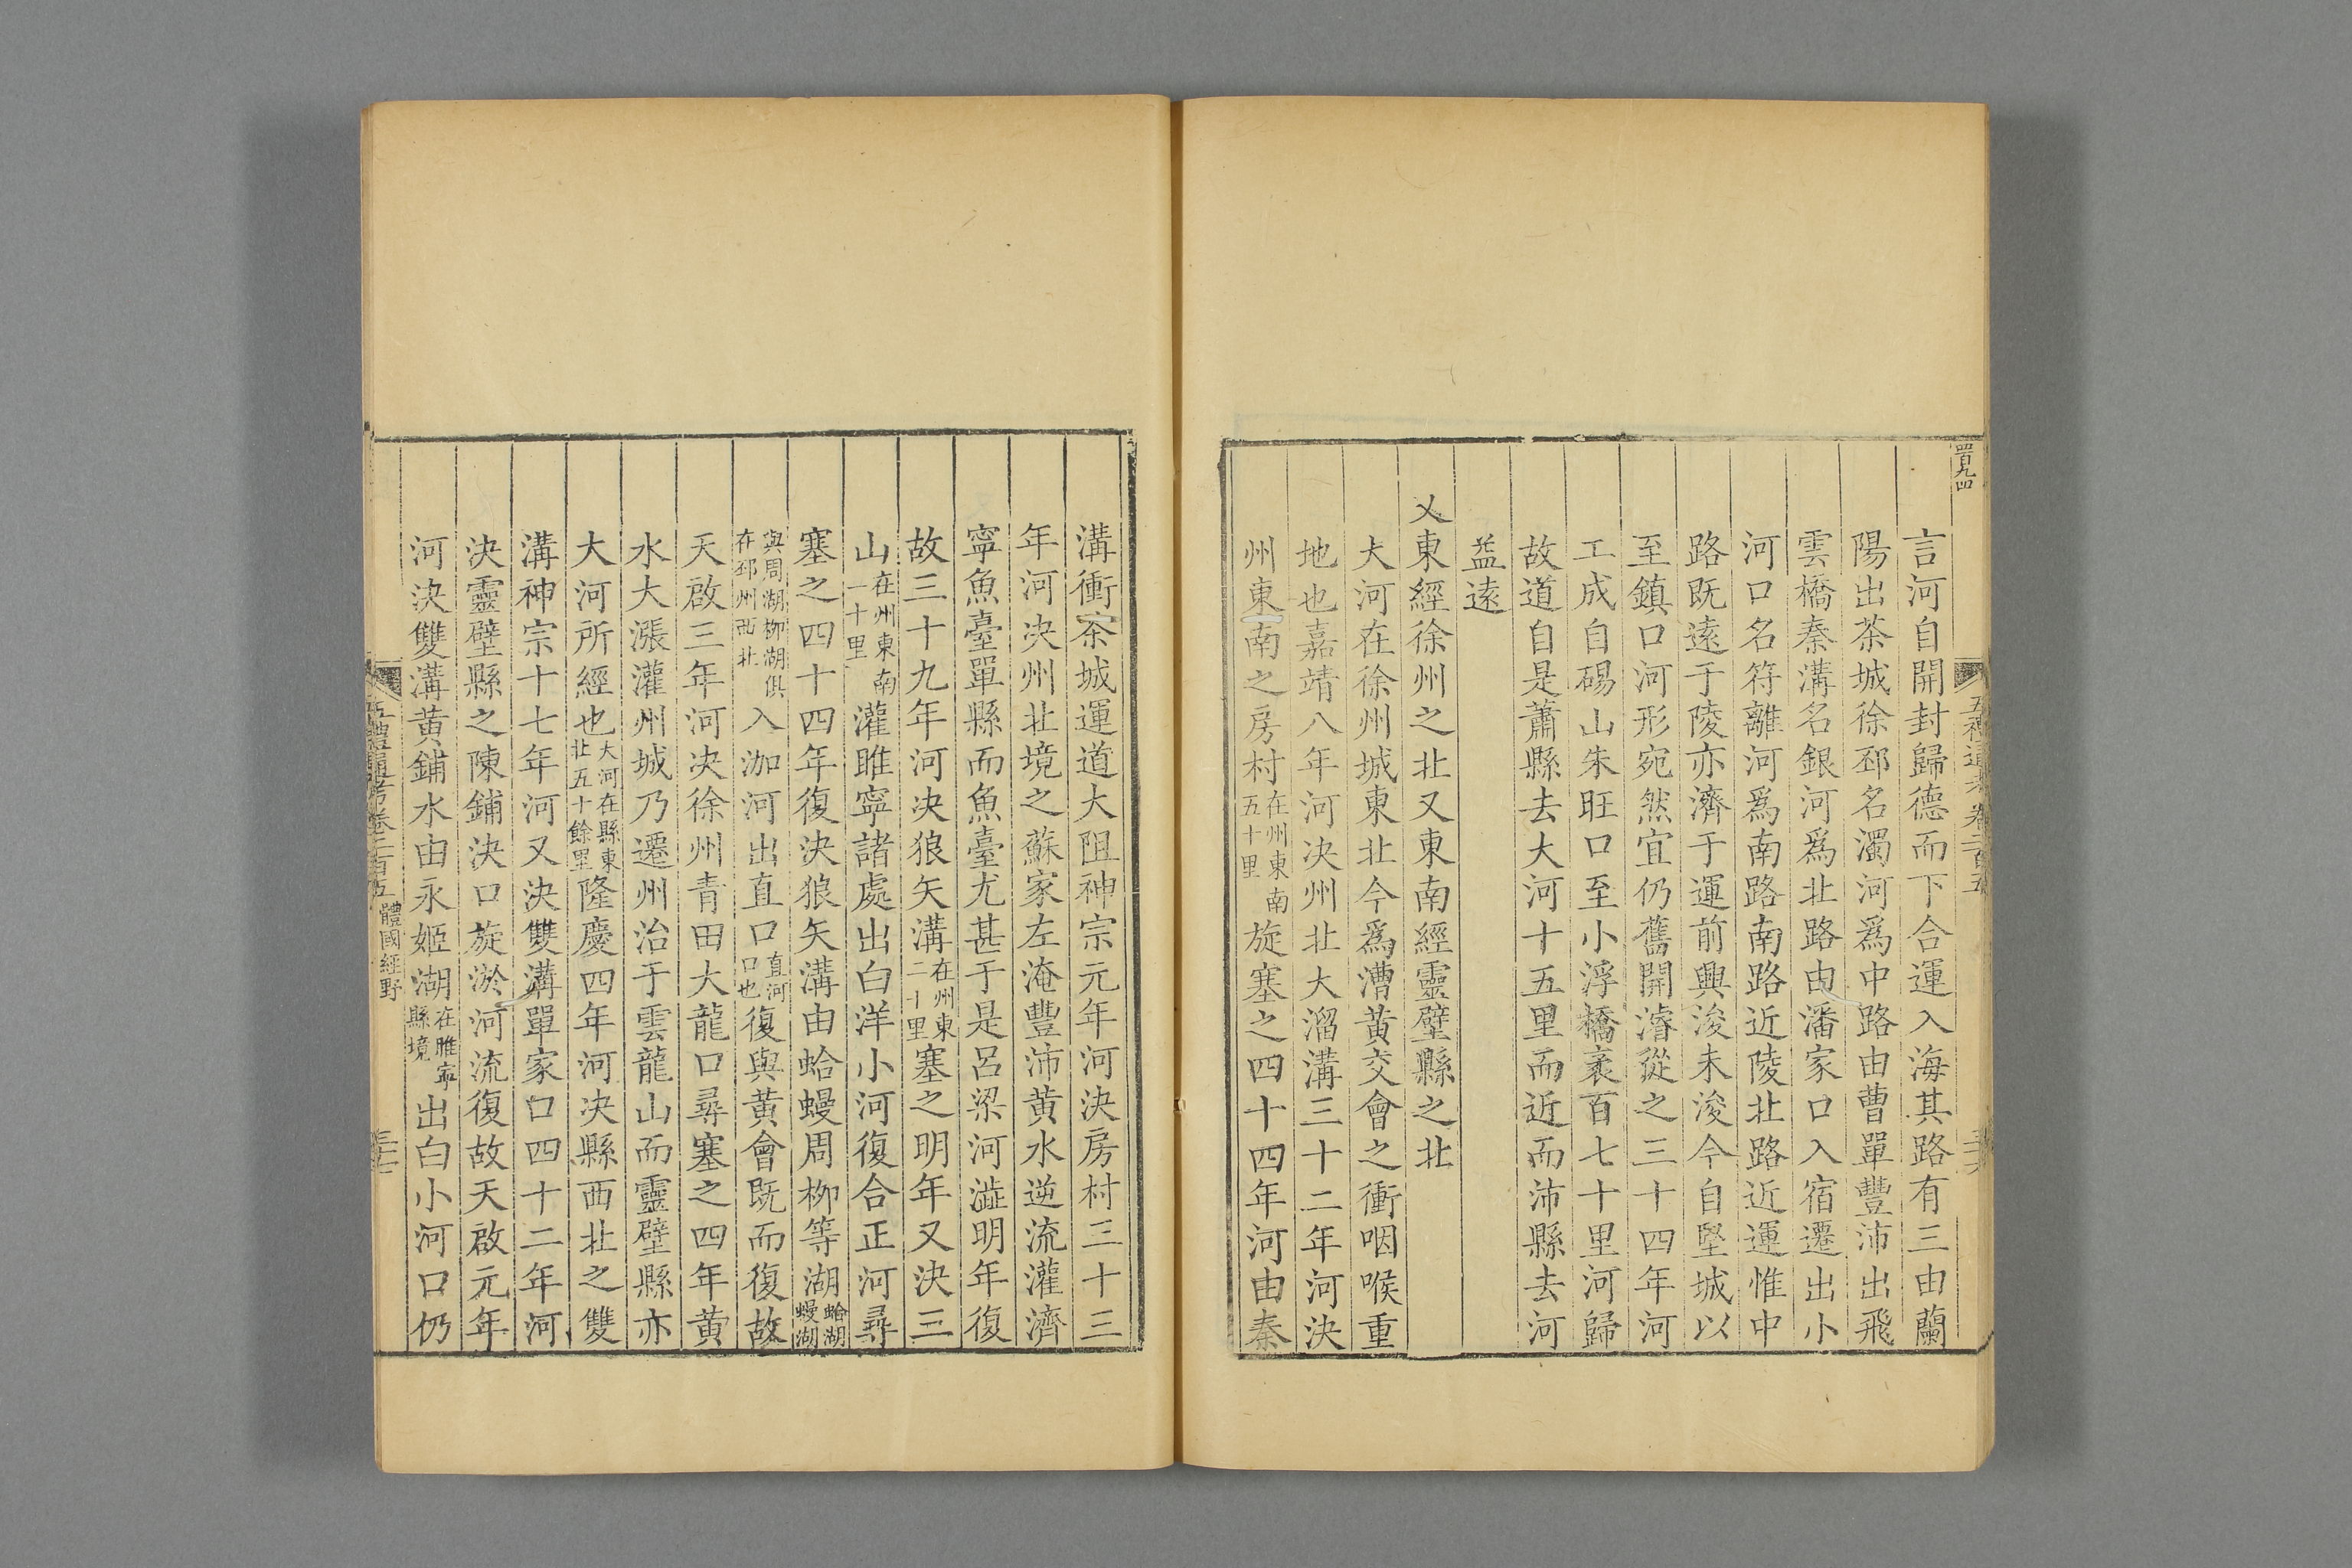 言河自開封歸德而下合運入海其路有三由蘭
陽出茶城徐邳名濁河爲中路由曹單豐沛出飛
雲橋秦溝名銀河爲北路由潘家口入宿遷出小
河口名符離河爲南路南路近陵北路近運惟中
路既遠于陵亦濟于運前興浚未浚今自堅城以
至鎮口河形宛然宜仍舊開濬從之三十四年河
工成自碭山朱旺口至小浮橋袤百七十里河歸
故道自是蕭縣去大河十五里而近而沛縣去河
益遠
又東經徐州之北又東南經靈璧縣之北
大河在徐州城東北今爲漕黃交會之衝咽喉重
地也嘉靖八年河决州北大溜溝三十二年河決
州東南之房村在州東南五十里旋塞之四十四年河由秦
溝衝茶城運道大阻神宗元年河決房村三十三
年河决州北境之蘇家左淹豐沛黃水逆流灌濟
寧魚臺單縣而魚臺尤甚于是呂梁河澁明年復
故三十九年河决狼矢溝在州東二十里塞之明年又決三
山在州東南一十里灌睢寧諸處出白洋小河復合正河尋
塞之四十四年復決狼矢溝由蛤蟃周柳等湖蛤湖蟃湖
與周湖柳湖俱在邳州西北入泇河出直口直河口也復與黃會既而復故
天啟三年河决徐州青田大龍口尋塞之四年黃
水大漲灌州城乃遷州治于雲龍山而靈璧縣亦
大河所經也大河在縣東北五十餘里隆慶四年河决縣西北之雙
溝神宗十七年河又決雙溝單家口四十二年河
決靈璧縣之陳鋪決口旋淤河流復故天啟元年
河決雙溝黃鋪水由永姬湖在睢寧縣境出白小河口仍
五禮通考卷二百五 體國經野